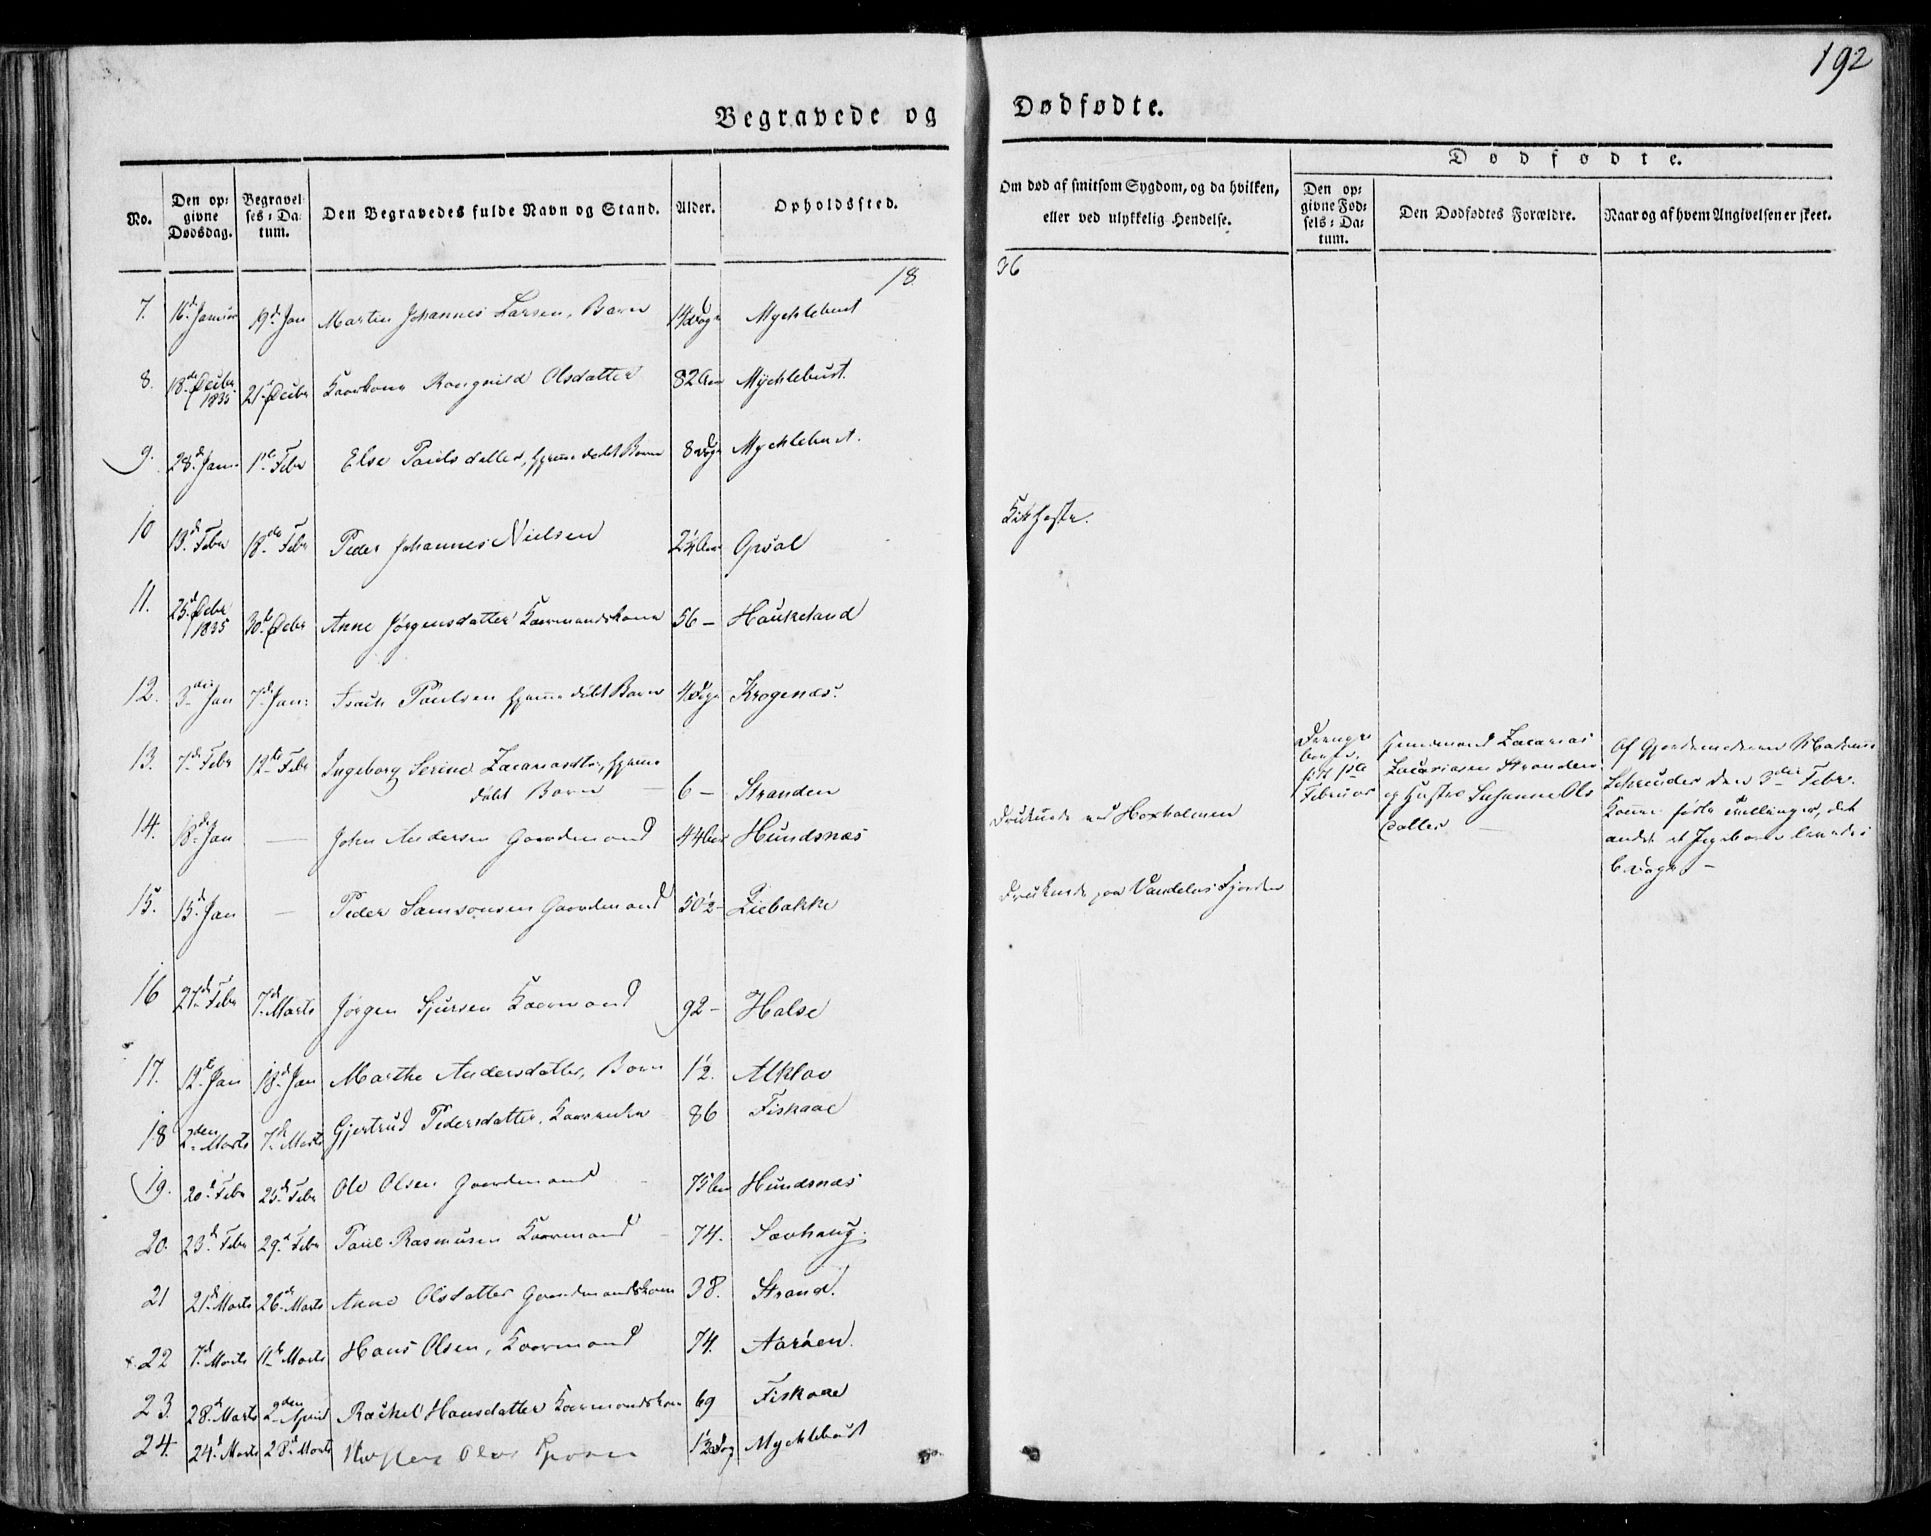 192
Begravede og Dødfødte.
No.
Den opgivne Dødsdag.
Begravelses-Datum.
Den Begravedes fulde Navn og Stand.
Alder.
Opholdssted.
Om død af smitsom Sygdom, og da hvilken, eller ved ulykkelig Hendelse.
Dødfødte.
Den opgivne Fødsels-Datum.
Den Dødfødtes Forældre.
Naar og af hvem Angivelsen er skeet.
18
36
7. 16d Januar 19d Jan Martin Johannes Larsen, Barn 14 Dage Myklebust
8. 18de Decbr 1835 21 Decbr Kaarkone Rangnild Olsdatter 82 Aar Myklebust.
9. 28d Jan 1te Febr Else Paulsdatter, hjemmedøbt Barn 8 Dage Myklebust.
10 13d Febr 18de Febr Peder Johannes Nielsen 2¼ Aar Opsal Kikhoste.
11. 25d Decbr 1835 30d Decbr Anne Jørgensdatter Kaarmandskone 56 – Haukeland
12. 3die Jan 7d Jan: Isach Paulsen hjemmedøbt Barn 4 Dage Krogenæs.
13. 7d Febr 12te Febr Ingeborg Serine Zacariasdtr, hjemme
døbt Barn – 6 – Stranden
Drenge
barn
født 1ste
Februar
Huusmand Zacarias
Zacariasen Stranden
og Hustro Susanne Ols
datter –
Af Gjordemoderen Madame
Schreuder den 3die Febr.
første Tvillinger, det
andet et Ingeborg levede
6 Dage –
14. 18de Jan – John Andersen Gaardmand 44 Aar Hundsnæs Druknede ved Hoxholmen
15. 15d Jan – Peder Samsonsen Gaardmand 50½ – Liebakke Druknede paa Vandelvsfjorden
16 27de Febr 7de Marts Jørgen Sjursen Kaarmand 92 – Halse
17. 12te Jan 18d Jan Marthe Andersdatter, Barn ½. Alklov
18 2den Marts 7de Marts Gjertrud Pedersdatter, Kaarenke 86 Fiskaae
19. 20d Febr 25d Febr Ole Olsen Gaardmand 75 Aar Hundsnæs
20. 23d Febr 29d Febr Paul Rasmusen Kaarmand – 74. Sævhaug.
21 21d Marts 26de Marts Anne Olsdatter Gaardmandskone 38. Strand.
22 7d Marts 11te Marts Hans Olsen, Kaarmand 74. Aarøen.
23. 28d Marts 2den April Rachel Hansdatter Kaarmandskone 69 Fiskaae
24. 24d Marts 28d Marts ½ Dag Myklebust